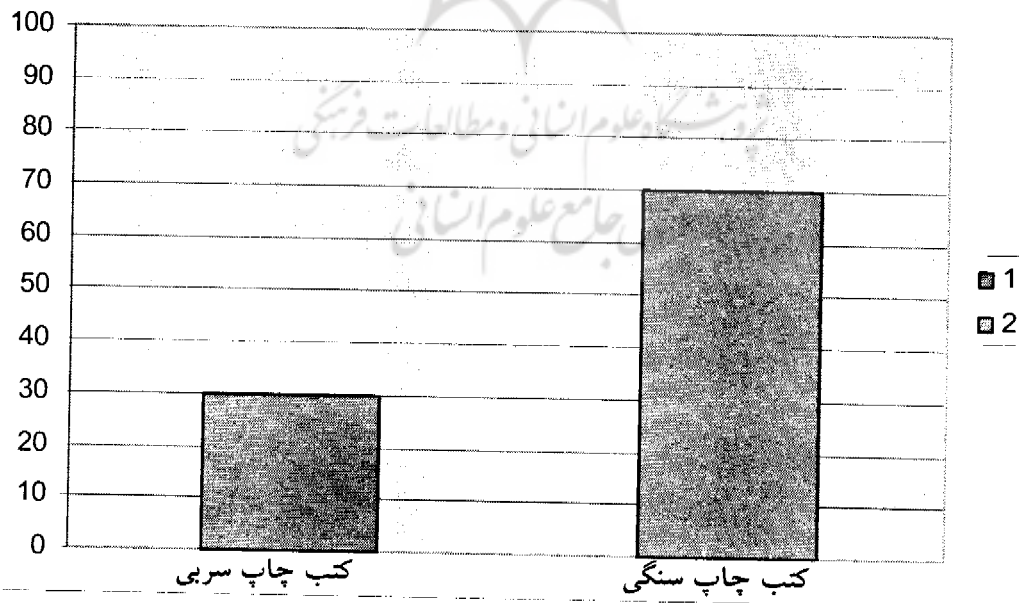 100
90
80
70
60
50
40
30
20
10
0
پژوهشگاه علوم انسانی و مطالعات فرهنگی
جامع علوم انسانی
1
2
کتب چاپ سربی
کتب چاپ سنگی